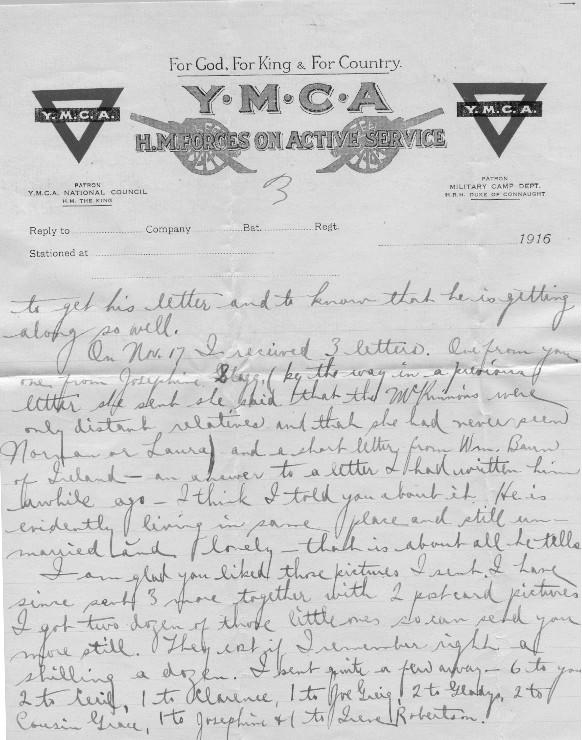 For God, For King & For Country.
Y.M.C.A.
Y·M·C·A
Y.M.C.A.
H.M. FORCES ON ACTIVE SERVICE
PATRON
Y.M.C.A. NATIONAL COUNCIL
H.M. THE KING
3
PATRON
MILITARY CAMP DEPT.
H.R.H. DUKE OF CONNAUGHT.
Reply to Company Bat. Regt.
1916
Stationed at
to get his letter and to know that he is getting
along so well.
On Nov. 17 I received 3 letters. One from you
one from Josephine (by the way in a previous
letter she sent she said that the McKinnons were
only distant relatives and that she had never seen
Norman or Laura) and a short letter from Wm.
of Ireland — an answer to a letter I had written him
awhile ago — I think I told you about it. He is
evidently living in same place and still un-
married and lonely — that is about all he tells
I am glad you liked those pictures I sent. I have
since sent 3 more together with 2 postcard pictures
I got two dozen of those little ones so can send you
more still. They cost if I remember right a
shilling a dozen. I sent quite a few away — 6 to you
2 to Cecil, 1 to Clarence, 1 to Joe Greig, 2 to Gladys, 2 to
Cousin Grace, 1 to Josephine & 1 to Irene Robertson.